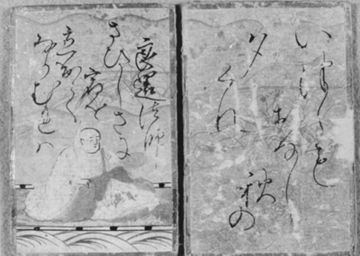 良暹法師
さひしさに
宿を
立
なかむれは
いつくも
おなし
秋の
夕くれ